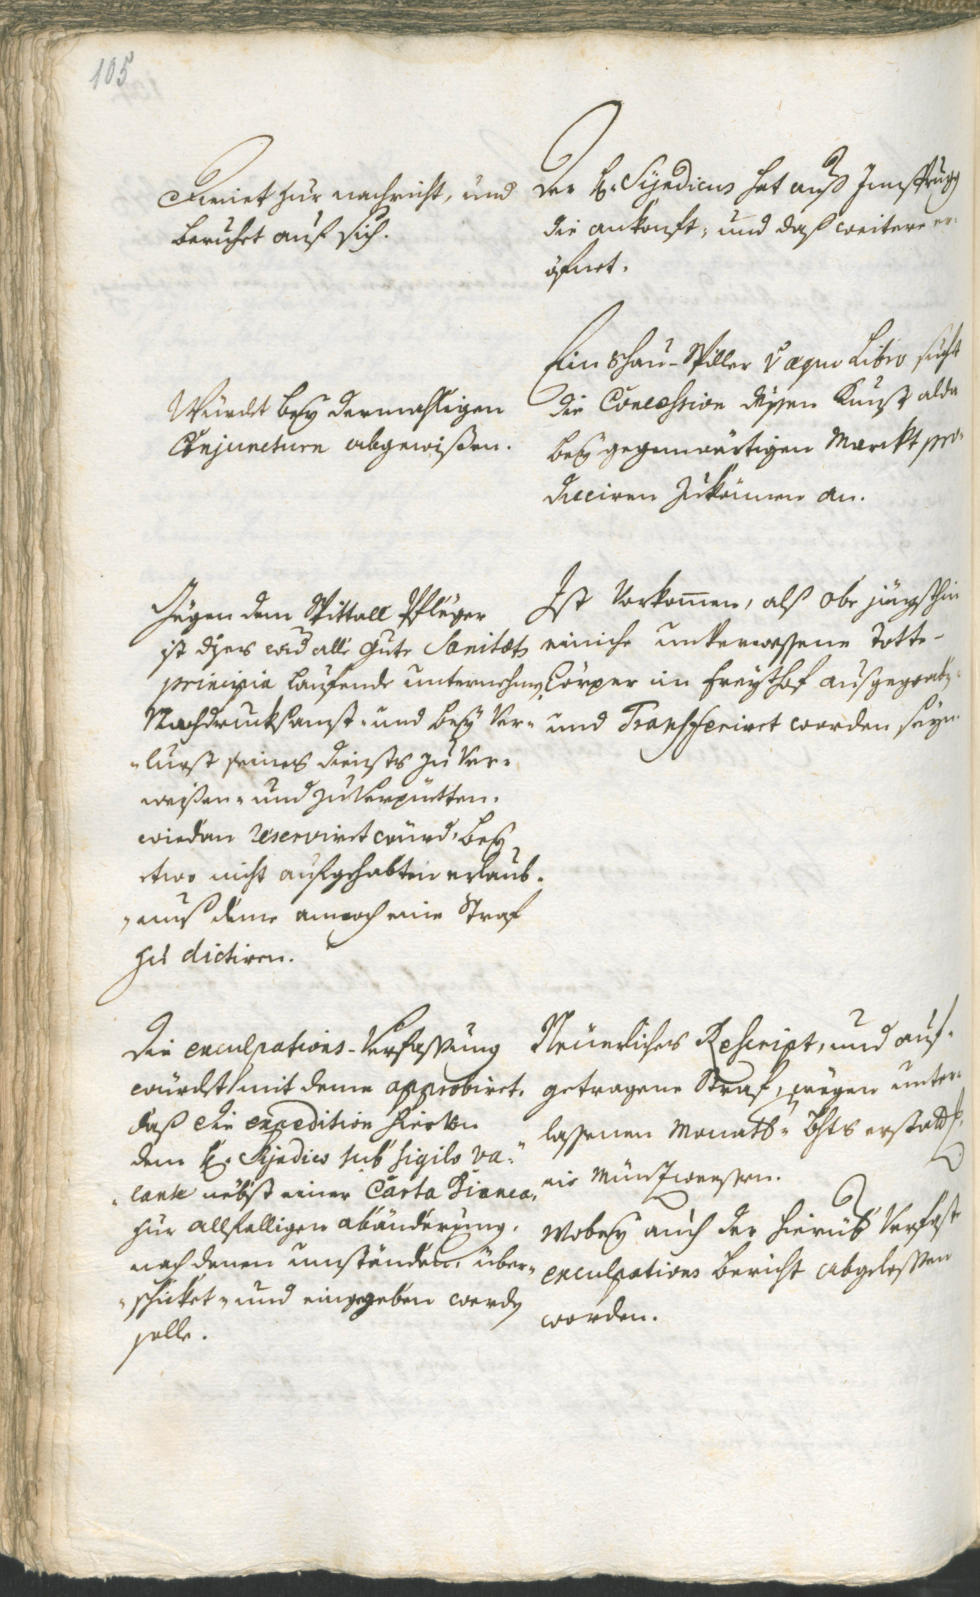 105
Dienet zur nachricht, und
beruhet auf sich.
Der H. Syndicus hat auß Innsprugg
die ankonft, und daß weitere er-
öfnet.
Würdt bey dermahligen
Conjuncturn abgewißen.
Ein Schau-Spiller Vaque Libro sucht
die Concession dessen Kunst alda
bey gegenwärtigen Marckt pro-
duciren zukönnen an.
Gegen dem Spittall Pfleger
ist dises wid alle gute Sanitæts
principia laufende unternehmen
Nachdrucksamst- und bey Ver-
lurst seines diensts zu Ver-
weißen- und zu Verpietten.
wiedan reserviret würd, bey
etwo nicht aufgehabten erlaub-
nuß deme annoch eine Straf
zu dictiren.
Ist Vorkommen, alß obe jüngsthin
einiche unverwessene Totte-
Cörper im freythof ausgegrab.
und Transferiret worden seyn.
Die exculpations-Verfassung
würdet mit deme approbiret,
daß die expedition hievon
dem H. Syndico sub sigilo va-
cante nebst einer Carta Bianca
zur allfälligen abänderung,
nach denen umständen, über-
schicket- und eingegeben werdn
solle.
Neuerliches Rescript, und auf-
getragene Straf, wegen unter-
lassenen Monath- bhts erstatt.
in Münzweesen.
Wobey auch der hierüb Verfaste
exculpations bericht abgelessen
worden.